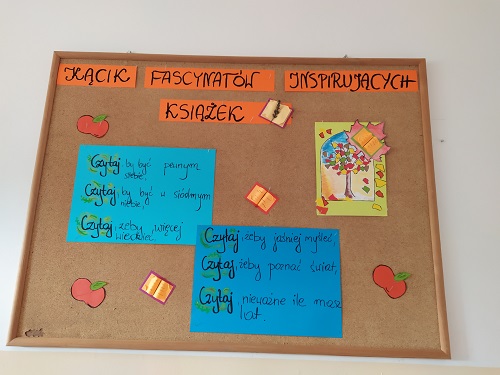 KĄCIK FASCYNATÓW INSPIRUJĄCYCH
KSIĄŻEK
Czytaj by być pewnym
siebie,
Czytaj, by być w siódmym
niebie,
Czytaj, żeby więcej
wiedzieć,
Czytaj, żeby jaśniej myśleć,
Czytaj, żeby poznać świat,
Czytaj, nieważne ile masz
lat.